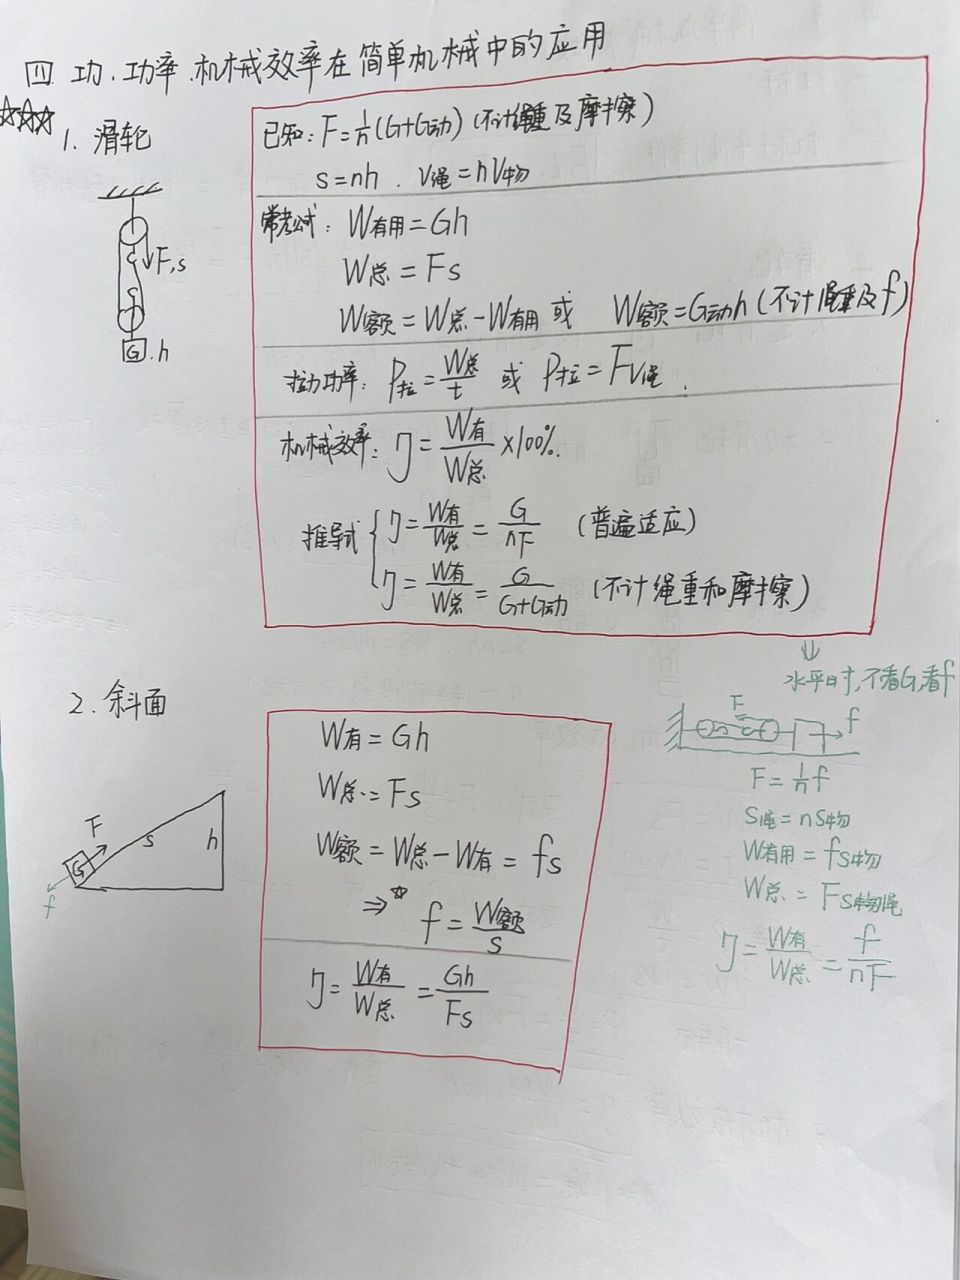 四 功、功率、机械效率在简单机械中的应用
☆☆☆
1. 滑轮
F,s
G .h
已知: F=1/n(G+G动) (不计绳重及摩擦)
s=nh . V绳=nV物
常考公式: W有用=Gh
W总=Fs
W额=W总-W有用 或 W额=G动h (不计绳重及f)
拉力功率: P拉=W总/t 或 P拉=FV绳.
机械效率: η=W有/W总×100%.
推导式 { η=W有/W总=G/nF (普遍适应)
η=W有/W总=G/G+G动 (不计绳重和摩擦)
⇓
水平时,不看G,看f
F f
F=1/n f
S绳=nS物
W有用=fS物
W总=FS绳
η=W有/W总=f/nF
2. 斜面
F s h
G
f
W有=Gh
W总=Fs
W额=W总-W有=fs
⇒☆ f=W额/s
η=W有/W总=Gh/Fs